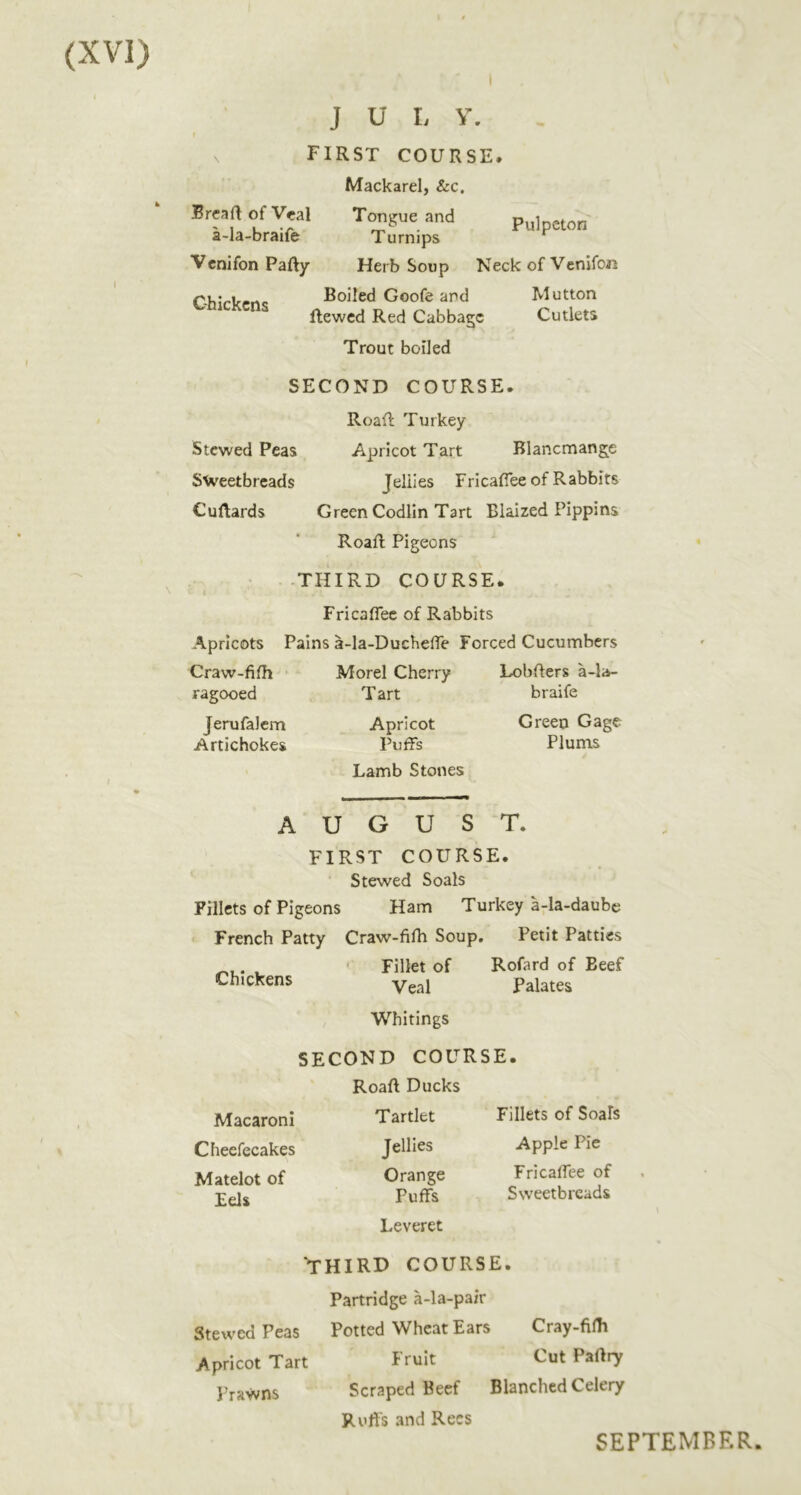 (XVI)
J U L Y.
FIRST COURSE.
Mackarel, &c.
Breaſt of Veal à-la-braiſe Tongue and Turnips Pulpeton
Veniſon Paſty Herb Soup Neck of Veniſon
Chickens Boiled Gooſe and ſtewed Red Cabbage Mutton Cutlets
Trout boiled
SECOND COURSE.
Roaſt Turkey
Stewed Peas Apricot Tart Blancmange
Sweetbreads Jellies Fricaſſee of Rabbits
Cuſtards Green Codlin Tart Blaized Pippins
Roaſt Pigeons
THIRD COURSE.
Fricaſſee of Rabbits
Apricots Pains à-la-Ducheſſe Forced Cucumbers
Craw-fiſh ragooed Morel Cherry Tart Lobſters à-la-braiſe
Jeruſalem Artichokes Apricot Puffs Green Gage Plums
Lamb Stones
A U G U S T.
FIRST COURSE.
Stewed Soals
Fillets of Pigeons Ham Turkey à-la-daube
French Patty Craw-fiſh Soup. Petit Patties
Chickens Fillet of Veal Roſard of Beef Palates
Whitings
SECOND COURSE.
Roaſt Ducks
Macaroni Tartlet Fillets of Soals
Cheeſecakes Jellies Apple Pie
Matelot of Eels Orange Puffs Fricaſſee of Sweetbreads
Leveret
THIRD COURSE.
Partridge à-la-pair
Stewed Peas Potted Wheat Ears Cray-fiſh
Apricot Tart Fruit Cut Paſtry
Prawns Scraped Beef Blanched Celery
Ruffs and Rees
SEPTEMBER.